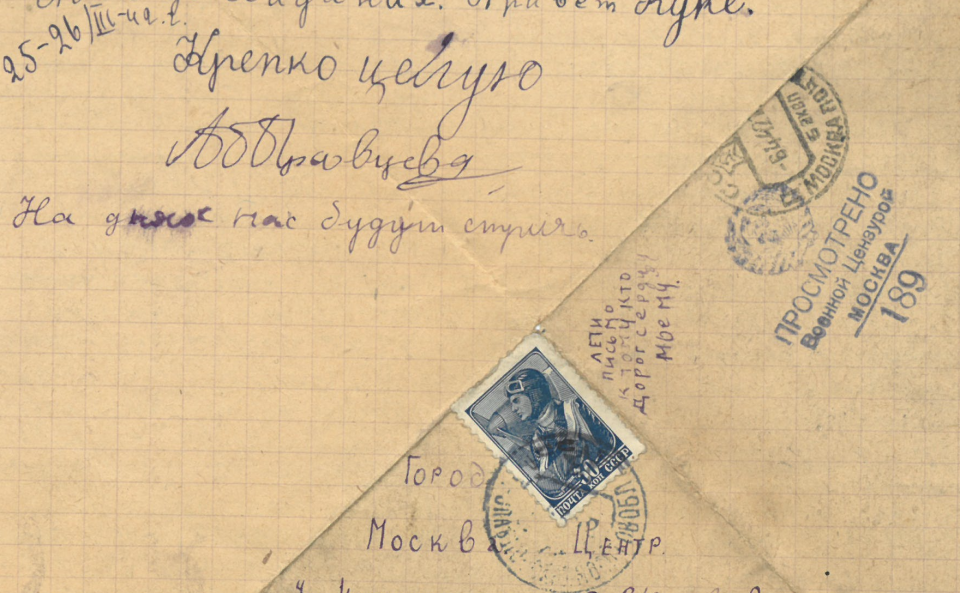 Привет
25-26/III-42 г.
Крепко целую
На днях нас будут стричь.
МОСКВА
ПРОСМОТРЕНО
Военной Цензурой
МОСКВА
189
ЛЕТИ
ПИСЬМО
К ТОМУ КТО
ДОРОГ СЕРДЦУ
МОЕМУ.
30
ПОЧТА КОП СССР
ГОРОД
МОСКВА ЦЕНТР.